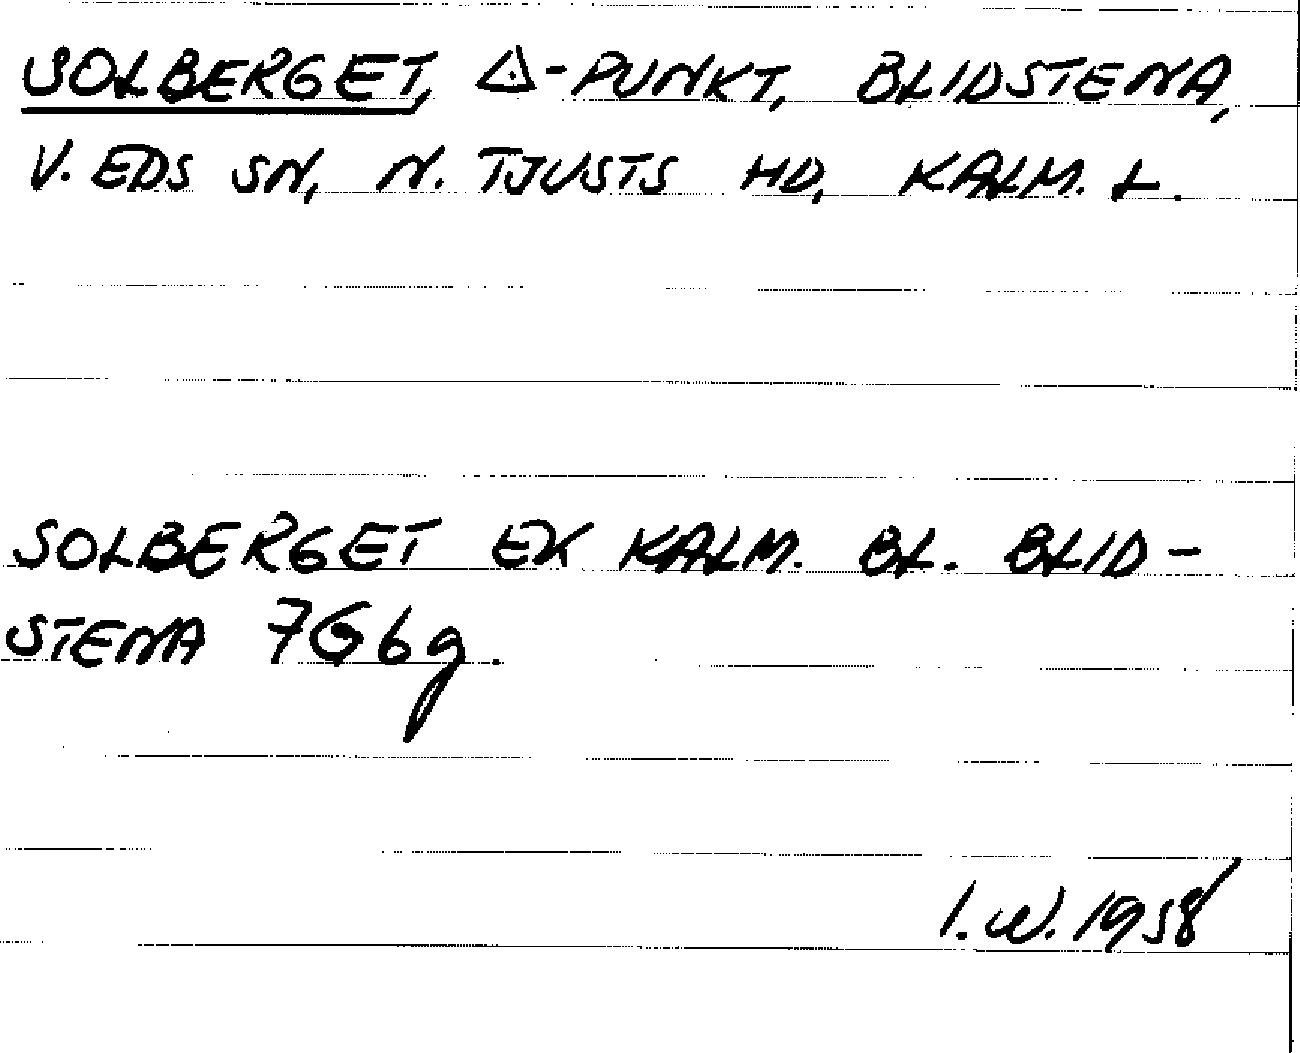 SOLBERGET, △-PUNKT, BLIDSTENA,
V. EDS SN, N. TJUSTS HD, KALM. L.
SOLBERGET EK KALM. BL. BLID-
STENA 7G6g.
I.W. 1958